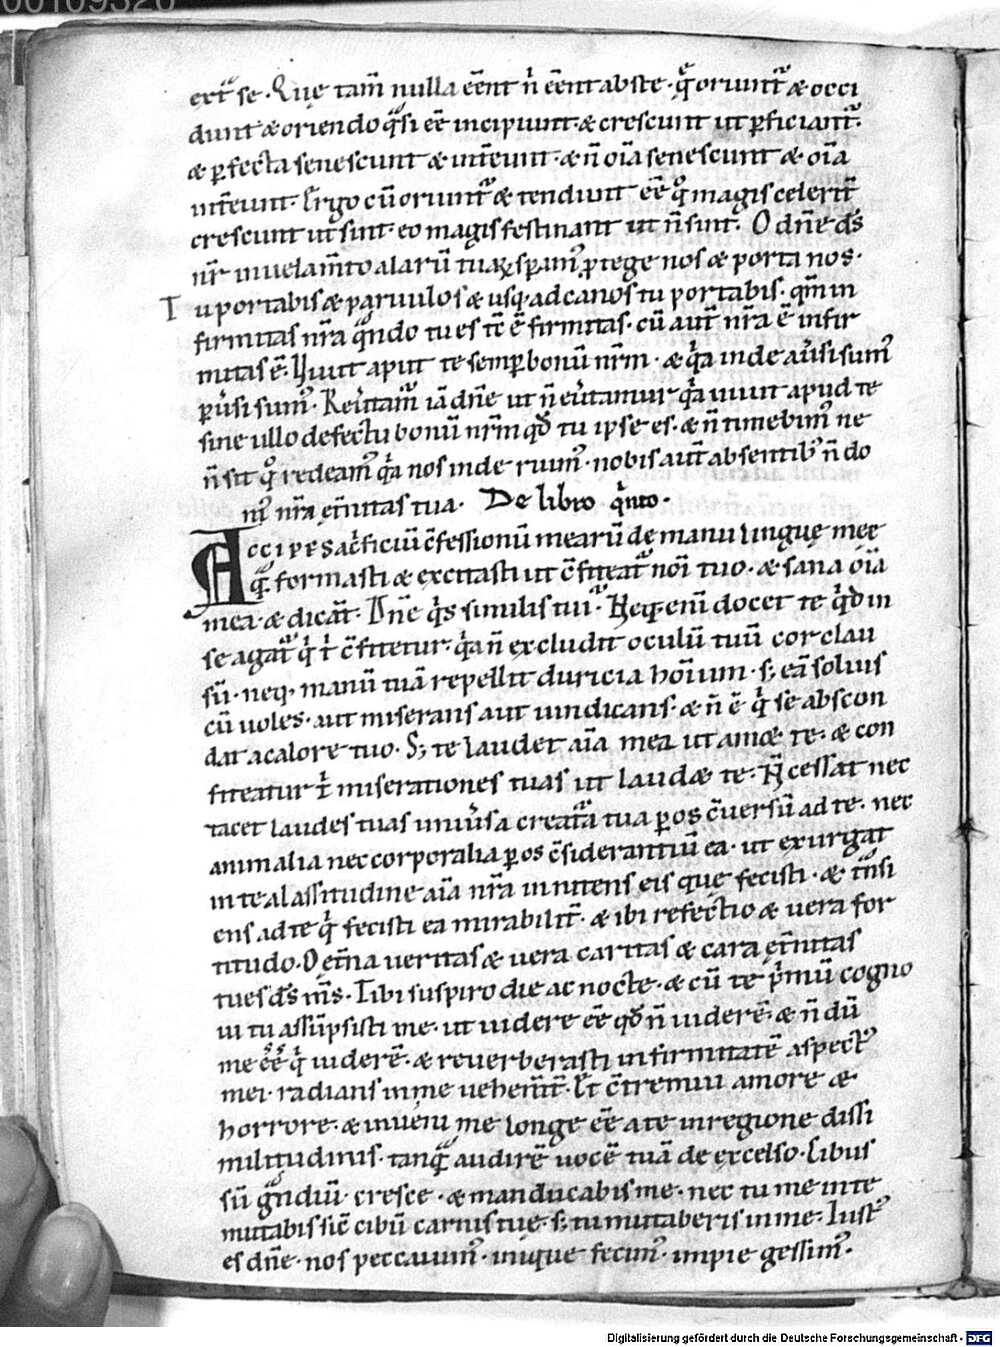 00109320
extᷓ se · Que tam̄ nulla eēnt n̄ eēnt abs te · qͣ oriuntᷓ & occi
dunt & oriendo qͣsi eē incipiunt & crescunt ut ꝑficiantᷓ ·
& ꝑfecta senescunt & int̄eunt · & n̄ oīa senescunt & oīa
int̄eunt · Ergo cū oriuntᷓ & tendunt eē qͦ magis celerit̄
crescunt ut sint · eo magis festinant ut n̄ sint · O dn̄e ds̄
nr̄ in uelam̄to alarū tuaꝝ speramꝰ ꝓtege nos & porta nos ·
Tu portabis & paruulos & usq; ad canos tu portabis · qm̄ in
firmitas nr̄a qͣndo tu es tc̄ ē firmitas · cū aut̄ nr̄a ē infir
mitas ē · Uiuit aput te semꝑ bonū nr̄m · & qͥa inde auͥsi sumꝰ
ꝑuͥsi sumꝰ · Reuͥtamᷓ iā dn̄e ut n̄ euͥtamur qͥa uiuit apud te
sine ullo defectu bonū nr̄m qđ tu ipse es · & n̄ timebimꝰ ne
n̄ sit qͦ redeamꝰ qͥa nos inde ruimꝰ · nobis aut̄ absentibꝰ n̄ do
mꝰ nr̄a et̄nitas tua · De libro qͥnto ·
Accipe sac̄ficiū c̄fessionū mearū de manu lingue mee
qͣ formasti & excitasti ut c̄fiteatᷓ noī tuo · & sana oīa
mea · & dicāt · Dn̄e qͥs similis tui · Neq; enī docet te qͥd in
se agatᷓ qͥ t̄ c̄fitetur · qͥa n̄ excludit oculū tuū cor clau
sū · neq; manū tuā repellit duricia hoīum · s; eā soluis
cū uoles · aut miserans aut uindicans · & n̄ ē qͥ se abscon
dat a calore tuo · S; te laudet aīa mea ut am& te · & con
fiteatur t̄ miserationes tuas ut laud& te · N̄ cessat nec
tacet laudes tuas uniuͥsa creatᷓa tua ꝑ os c̄uersū ad te · nec
animalia nec corporalia ꝑ os c̄siderantiū ea · ut exurgat
in te a lassitudine aīa nr̄a innitens eis que fecisti · & tn̄si
ens ad te qͥ fecisti ea mirabilit̄ · & ibi refectio & uera for
titudo · O et̄na ueritas & uera caritas & cara et̄nitas
tu es ds̄ ms̄ · Tibi suspiro die ac nocte · & cū te pͥmū cogno
ui tu assūpsisti me · ut uidere eē qđ n̄ uiderē · & n̄ dū
me eē qͥ uiderē · & reuerberasti infirmitatē aspectꝰ
mei · radians in me uehem̄t̄ · Et c̄tremui amore &
horrore · & inueni me longe eē a te in regione dissi
militudinis · tanqͣ audirē uocē tuā de excelso · Cibus
sū gͣndiū cresce · & manducabis me · nec tu me in te
mutabis sic̄ cibū carnis tue · s; tu mutaberis in me · Iustꝰ
es dn̄e · nos peccauimꝰ · inique fecimꝰ · impie gessimꝰ ·
Digitalisierung gefördert durch die Deutsche Forschungsgemeinschaft - DFG